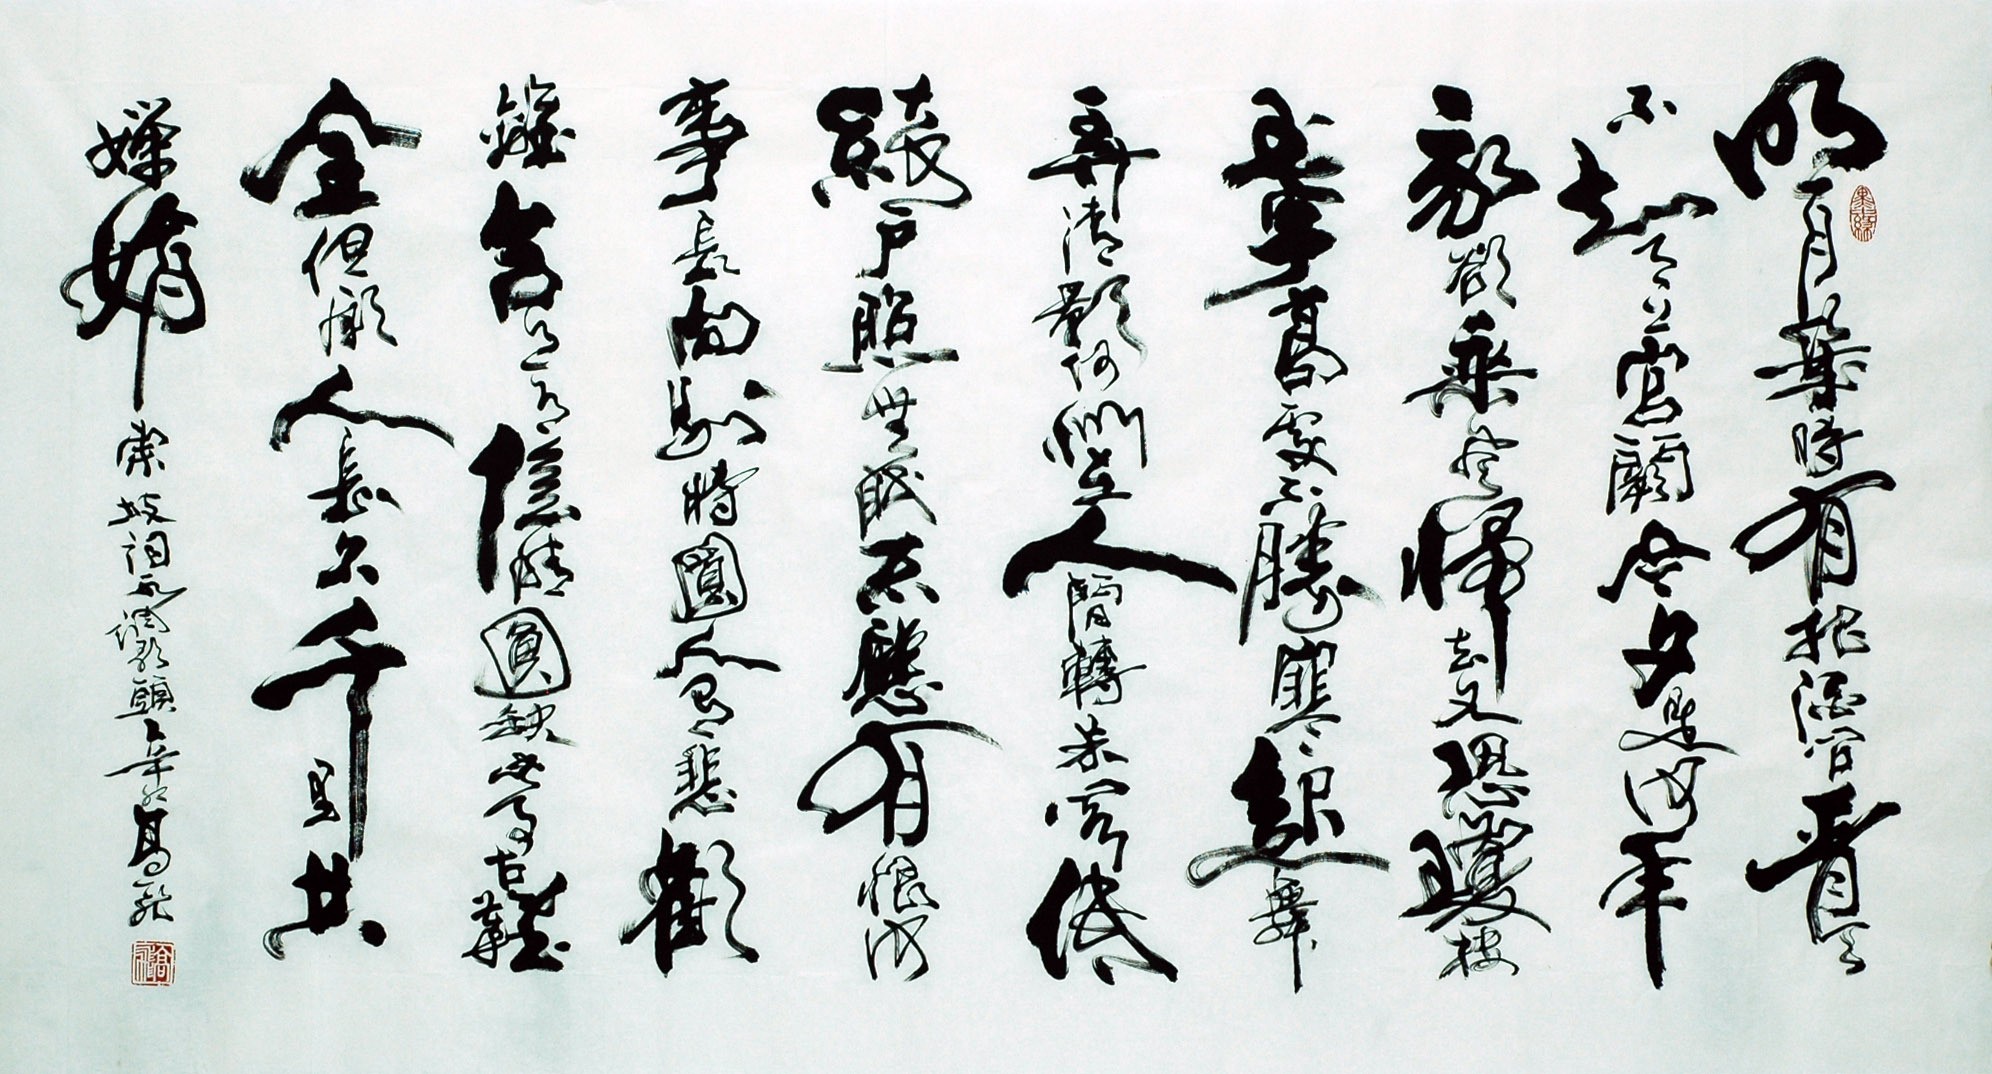 明月幾時有把酒問青天
不知天上宮闕今夕是何年
我欲乘風歸去又恐瓊樓
玉宇高處不勝寒起舞
弄清影何似在人間轉朱閣低
綺戶照無眠不應有恨何
事長向別時圓人有悲歡
離合月有陰晴圓缺此事古難
全但願人長久千里共
嬋娟 東坡詞水調歌頭 辛卯